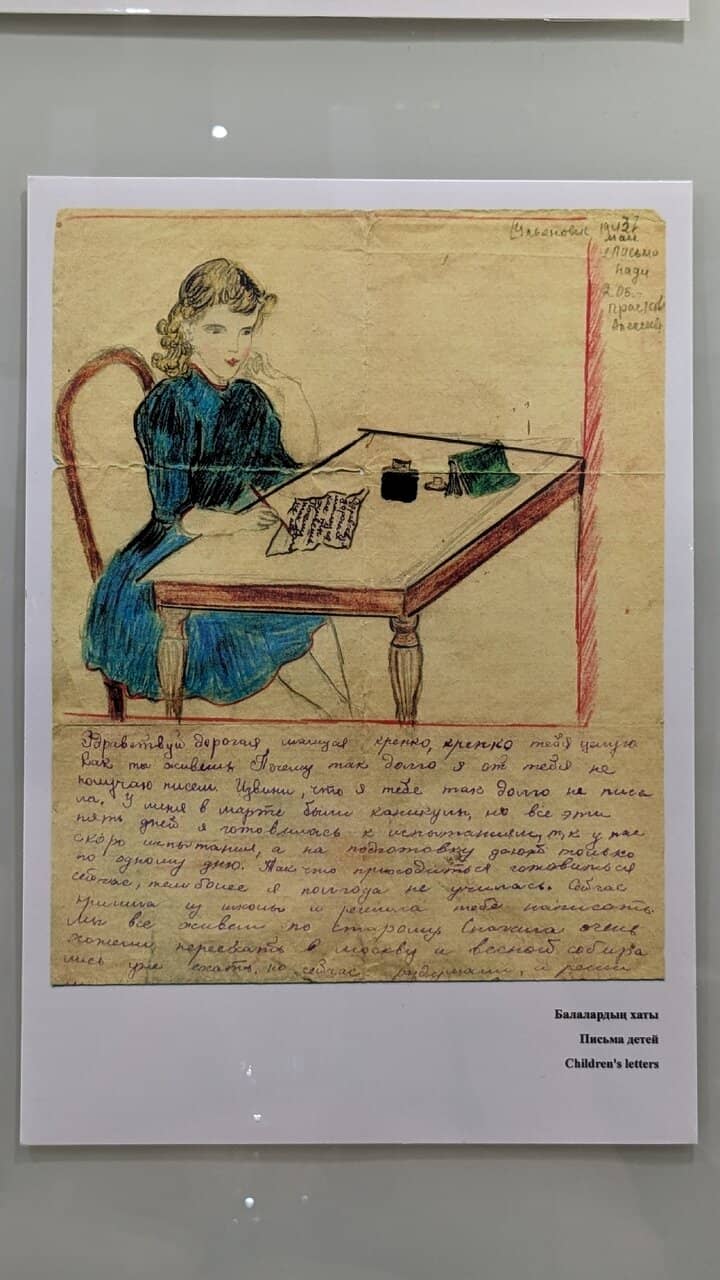 Ульяновск 1943?
май
Письмо
Нади
2.05.-
Здравствуй дорогая мамочка крепко, крепко тебя целую
Как ты живешь. Почему так долго я от тебя не
получаю писем. Извини, что я тебе так долго не писа
ла. У меня в марте были каникулы, но все эти
пять дней я готовилась к испытаниям, т.к у нас
скоро испытания, а на подготовку дают только
по одному дню. Так что приходиться готовиться
сейчас, тем более я полгода не училась. Сейчас
пришла из школы и решила тебе написать.
Мы все живем по старому. Сначала очень
хотели переехать в Москву и весной собира
лись уже ехать, но сейчас раздумали, и
Балалардың хаты
Письма детей
Children's letters